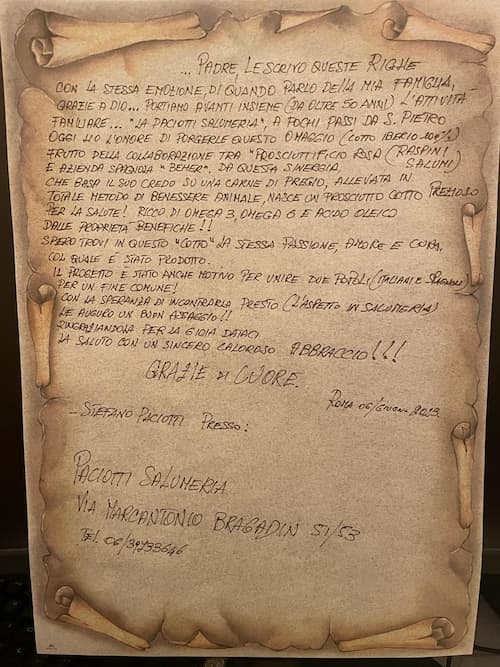 ... PADRE, LE SCRIVO QUESTE RIGHE
CON LA STESSA EMOZIONE, DI QUANDO PARLO DELLA MIA FAMIGLIA,
GRAZIE A DIO... PORTIAMO AVANTI INSIEME (DA OLTRE 50 ANNI) L'ATTIVITA'
FAMILIARE... "LA PACIOTTI SALUMERIA", A POCHI PASSI DA S. PIETRO
OGGI HO L'ONORE DI PORGERLE QUESTO OMAGGIO (COTTO IBERICO 100%)
FRUTTO DELLA COLLABORAZIONE TRA "PROSCIUTTIFICIO ROSA (RASPINI SALUMI)
E AZIENDA SPAGNOLA "BEHER". DA QUESTA SINERGIA,
CHE BASA IL SUO CREDO SU UNA CARNE DI PREGIO, ALLEVATA IN
TOTALE METODO DI BENESSERE ANIMALE, NASCE UN PROSCIUTTO COTTO PREZIOSO
PER LA SALUTE! RICCO DI OMEGA 3, OMEGA 6 E ACIDO OLEICO
DALLE PROPRIETA' BENEFICHE!!
SPERO TROVI IN QUESTO "COTTO" LA STESSA PASSIONE, AMORE E CURA,
COL QUALE E' STATO PRODOTTO.
IL PROGETTO E' STATO ANCHE MOTIVO PER UNIRE DUE POPOLI (ITALIANI E SPAGNOLI)
PER UN FINE COMUNE!
CON LA SPERANZA DI INCONTRARLA PRESTO (L'ASPETTO IN SALUMERIA)
LE AUGURO UN BUON ASSAGGIO!!
RINGRAZIANDOLA PER LA GIOIA DATACI
LA SALUTO CON UN SINCERO CALOROSO ABBRACCIO!!!
GRAZIE DI CUORE.
ROMA 06/GIUGNO/2023.
- STEFANO PACIOTTI PRESSO:
PACIOTTI SALUMERIA
VIA MARCANTONIO BRAGADIN 51/53
TEL. 06/39733646